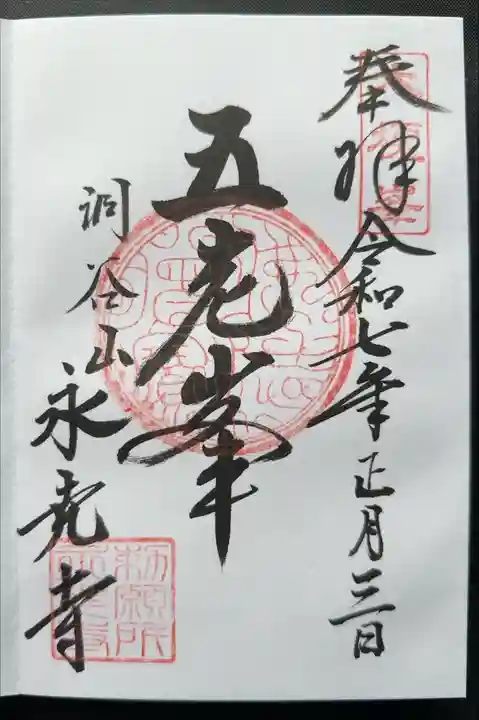 奉拝 令和七年正月三日
五老峯
洞谷山
永光寺
勅願所